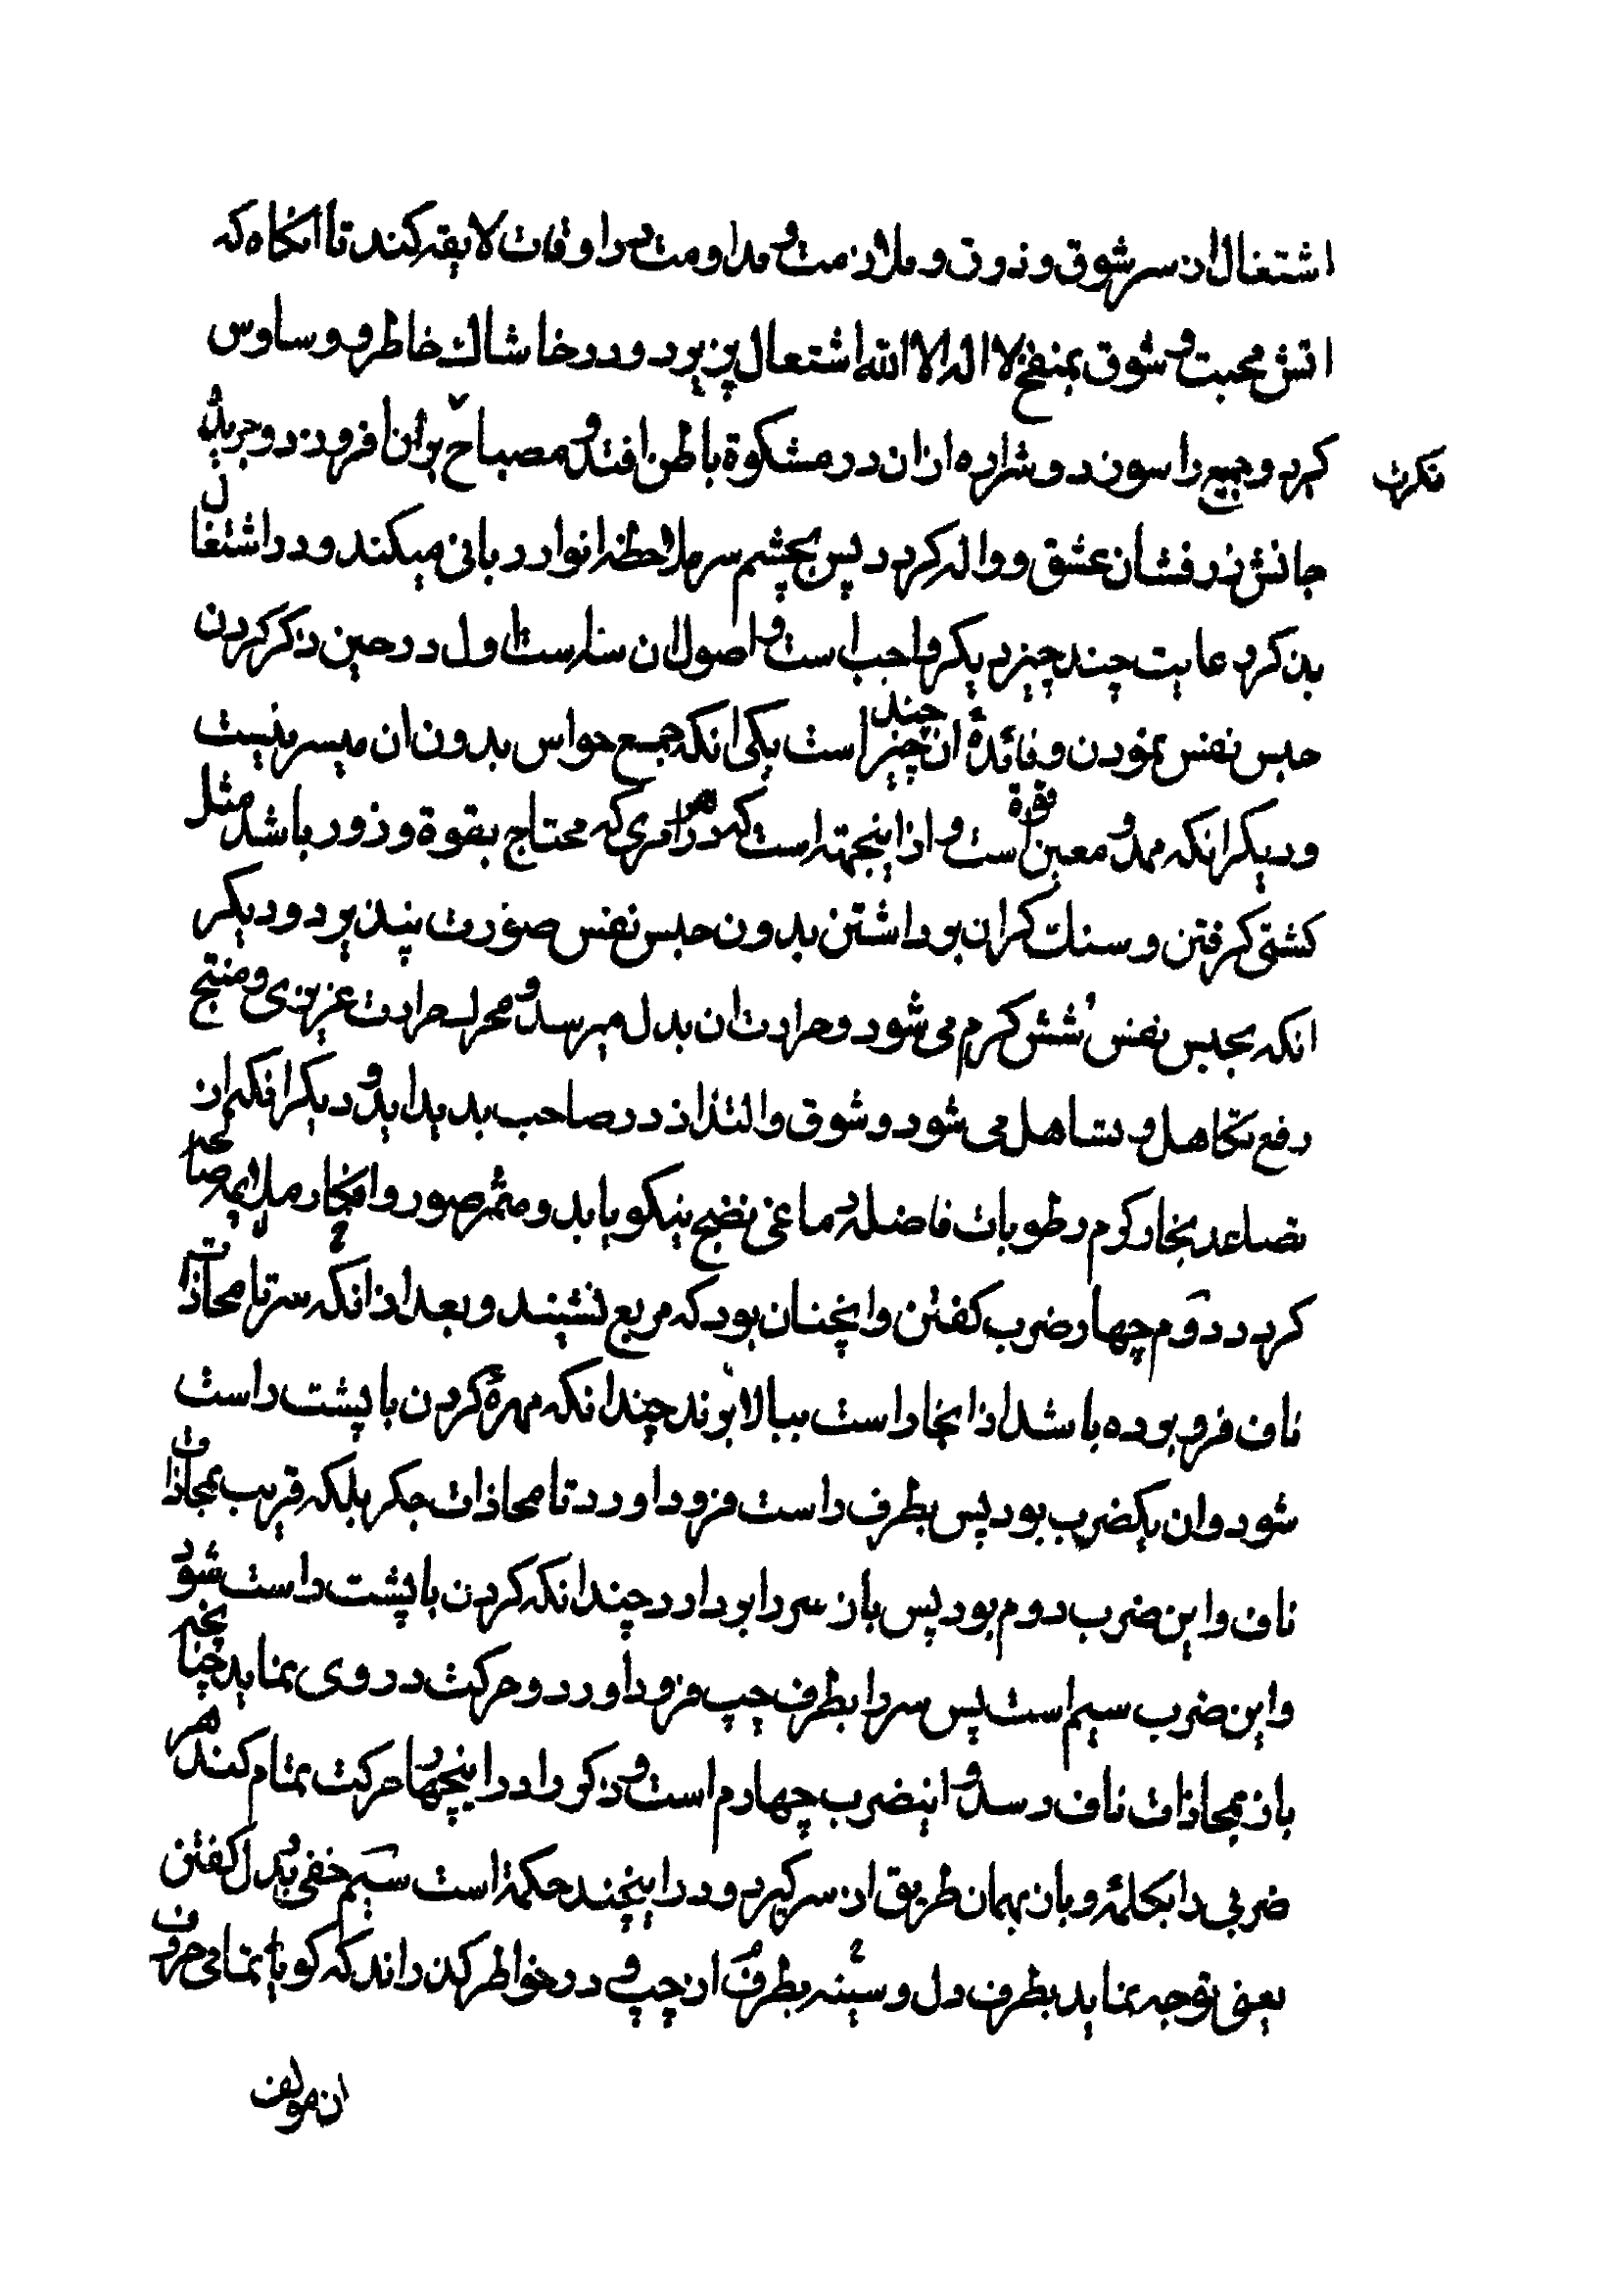 اشتغال ان سر شوق و ذوق و ملازمت و مداومت در اوقات لایقه کند تا انکاه که
اتش محبت و شوق بمنفخ لا اله الا الله اشتعال پزیرد و در خاشاک خاطر و وساوس
کیرد و جمیع را سوزد و شراره ازان در مشکوة باطن افتد و مصباح بران افروزد و
فکرت
جانش نور فشان عشق و واله کردد پس بچشم سر ملاحظه انوار ربانی میکند و در اشتغال
بذکر رعایت چند چیز دیکر واجب است و اصول ان سه است اول در حین ذکر کردن
حبس نفس نمودن و فائدهٔ ان چند چیز است یکی انکه جمع حواس بدون ان میسر نیست
و دیکر انکه ممد و معین قوة است و ازاینجهته است که در هر امری که محتاج بقوة و زور باشد مثل
کشتی کرفتن و سنک کران برداشتن بدون حبس نفس صورت نپذیرد و دیکر
انکه بحبس نفس شش کرم می شود و حرارت ان بدل میرسد و محرک حرارت غریزی و منتج
رفع تکاهل و تساهل می شود و شوق و التذاذ در صاحب پدید اید و دیکر انکه از
تصاعد بخار کرم رطوبات فاضله دماغی نضج نیکو یابد و مثمر صور و افکار ملایمه صائبه
کردد دوم چهار ضرب کفتن و انچنان بود که مربع نشیند و بعد ازانکه سر تا محاذات
ناف فرو برده باشد ازانجا راست ببالا برند چندانکه مهرهٔ کردن با پشت راست
شود و ان یکضرب بود پس بطرف راست فرود اورد تا محاذات جکر بلکه قریب بمحاذات
ناف و این ضرب دوم بود پس باز سر را بردارد چندانکه کردن با پشت راست شود
و این ضرب سیم است پس سر را بطرف چپ فرود اورد و حرکت در روی نماید چنانچه
باز بمحاذات ناف رسد و اینضرب چهارم است و ذکر را در اینچهار حرکت تمام کند هر
ضربی را بکلمهٔ و باز بهمان طریق از سر کیرد و در اینچند حکمة است سیم خفی بدل کفتن
یعنی توجه نماید بطرف دل و سینه بطرف چپ و در خواطر کذراند که کویا تمامی حروف
ان مولف